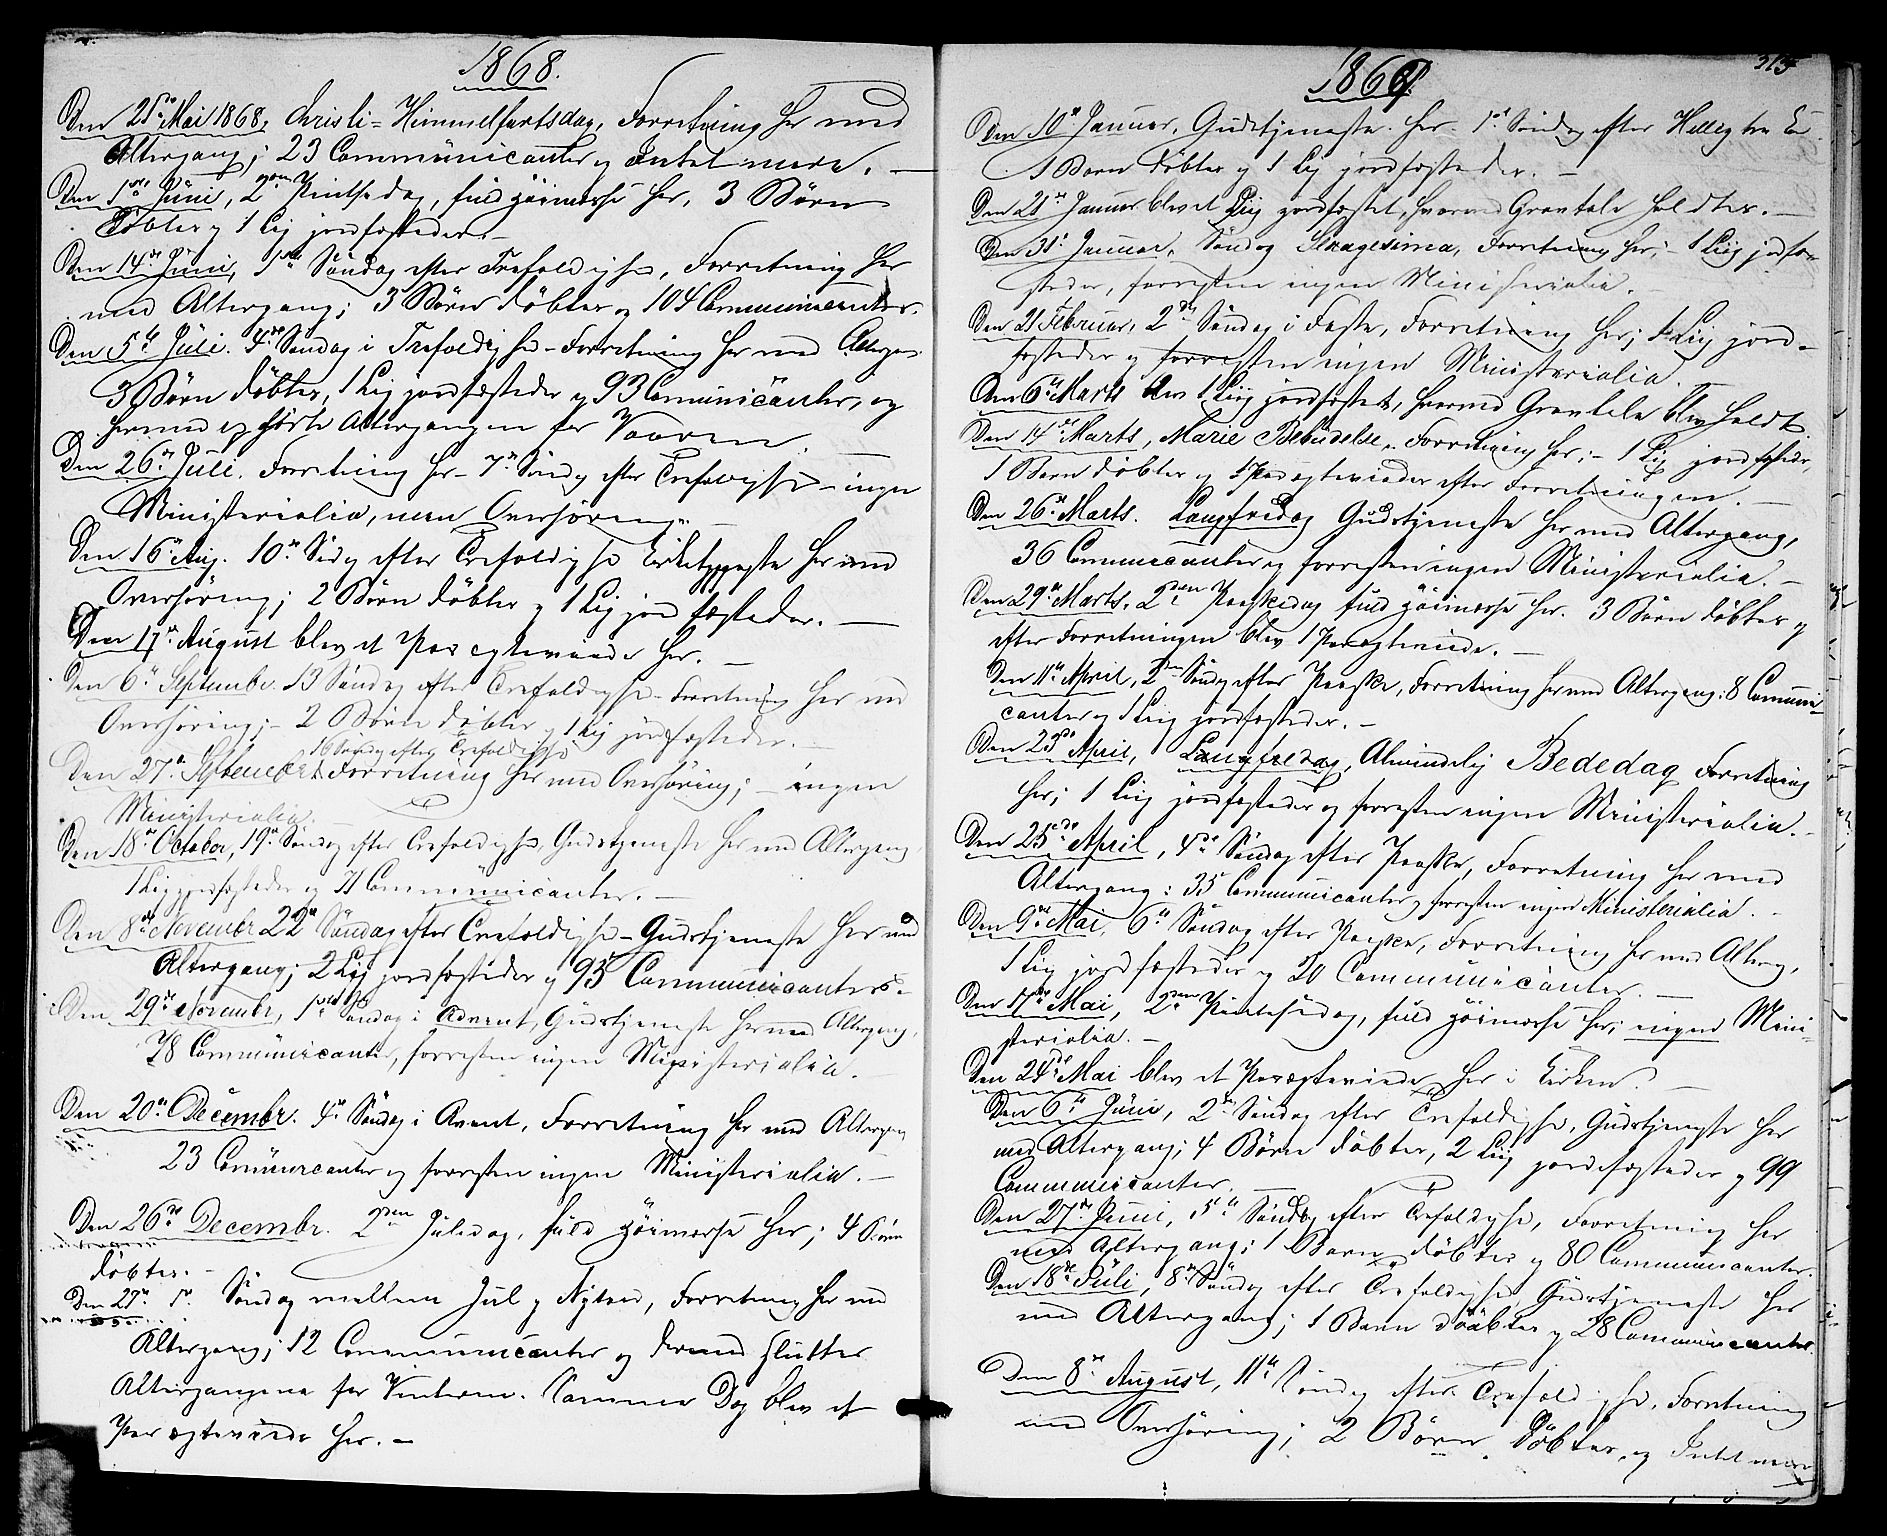 1868.
Den 21de Mai 1868, Christi-Himmelfartsdag, Forretning her med
Altergang; 23 Communicanter og Intet mere. —
Den 1ste Juni, 2den Pintsedag, fuld höimesse her, 3 Börn
döbte og 1 Lig jordfæstedes. —
Den 14de Juni, 1ste Söndag efter Trefoldighed, Forretning her
med Altergang; 3 Börn döbtes og 104 Communicanter.
Den 5te Juli. 4de Söndag i Trefoldighed - Forretning her med Altergang
3 Börn döbtes, 1 Lig jordfæstedes og 93 Comunicanter, og
hermed ophörte Altergangen for Vaaren. —
Den 26de Juli. Forretning her - 7de Söndag efter Trefoldighed - ingen
Ministerialia, men Overhöring. —
Den 16de Aug. 10de Söndag efter Trefoldighed Kirketjeneste her med
Overhöring; 2 Börn döbtes og 1 Lig jordfæstedes. —
Den 17de August blev et Par egteviede her. —
Den 6te Septembr. 13 Söndag efter Trefoldighed - Forretning her med
Overhöring; - 2 Börn döbtes og 1 Lig jordfæstedes. —
16 Söndag efter Trefoldighed
Den 27de Septembr. Forretning her med Overhöring; - ingen
Ministerialia. —
Den 18de October, 19de Söndag efter Trefoldighed, Gudstjeneste her med Altergang
1 Lig jordfæstedes og 71 Communicanter. —
Den 8de Novembr 22de Söndag efter Trefoldighed - Gudstjeneste her med
Altergang; 2 Lig jordfæstedes og 95 Communicanter. -
Den 29de Novembr, 1ste Söndag i Advent, Gudstjeneste her med Altergang,
78 Communicanter, forresten ingen Ministerialia. —
Den 20de Decembr. 4de Söndag i Avent, Forretning her med Altergang
23 Communicanter og forresten ingen Ministerialia. —
Den 26de Decembr. 2den Juledag, fuld höimesse her; 4 Börn
döbtes. -
Den 27de Söndag mellem Jul og Nytaar, Forretning her med
Altergang; 12 Communicanter og dermed slutter
Altergangene for Vinteren. Samme Dag blev et
Par egteviede her. —
1869.
315
Den 10de Januar, Gudstjeneste her. 1ste Söndag efter Hellig tre
1 Barn döbtes og 1 Lig jordfæstedes. —
Den 21de Januar blev et Liig jordfæstet, hvorved Gravtale holdtes. —
Den 31te Januar, Söndag Sexagesima, Forretning her; - 1 Liig jordfæ-
stedes, forresten ingen Ministerialia. —
Den 21 Februar, 2den Söndag i Faste, Forretning her; 4 Liig jord-
fæstedes og forresten ingen Ministerialia. —
Den 6te Marts blev 1 Liig jordfæstet, hvorved Gravtale blev holdt.
Den 14de Marts, Marie Bebudelse, Forretning her; - 1 Lig jordfæstedes,
1 Barn döbtes og 1 Par egteviedes efter Forretningen. —
Den 26de Marts. Langfredag Gudstjeneste her med Altergang,
36 Communicanter og forresten ingen Ministerialia. —
Den 29de Marts, 2den Paaskedag fuld höimesse her. 3 Börn döbtes og
efter Forretningen blev 1 Par egteviede. —
Den 11te April, 2den Söndag efter Paaske, Forretning her med Altergang: 8 Communi-
canter og 1 Liig jordfæstedes. —
Den 23de April, Langfredag, Almindelig Bededag Forretning
her; 1 Liig jordfæstedes og forresten ingen Ministerialia. —
Den 25de April, 4de Söndag efter Paaske, Forretning her med
Altergang: 35 Communicanter og forresten ingen Ministerialia. —
Den 9de Mai, 6te Söndag efter Paaske, Forretning her med Alterg,
1 Lig jordfæstedes og 20 Communicanter. —
Den 17de Mai, 2den Pintsedag, fuld höimesse her; ingen Mini-
sterialia. —
Den 24de Mai blev et Par egteviede her i Kirken. —
Den 6te Juni, 2den Söndag efter Trefoldighed, Gudstjeneste her
med Altergang; 4 Börn döbtes, 2 Liig jordefæstedes og 99
Communicanter. —
Den 27de Juni, 5te Söndag efter Trefoldighed, Forretning her
med Altergang; 1 Barn döbtes og 80 Communicanter.
Den 18de Juli, 8de Söndag efter Trefoldighed Gudstjeneste her
med Altergang; 1 Barn döbtes og 28 Communicanter.
Den 8de August, 11te Söndag efter Trefoldighed, Forretning
med Overhöring; 2 Börn döbtes, og Intet mere